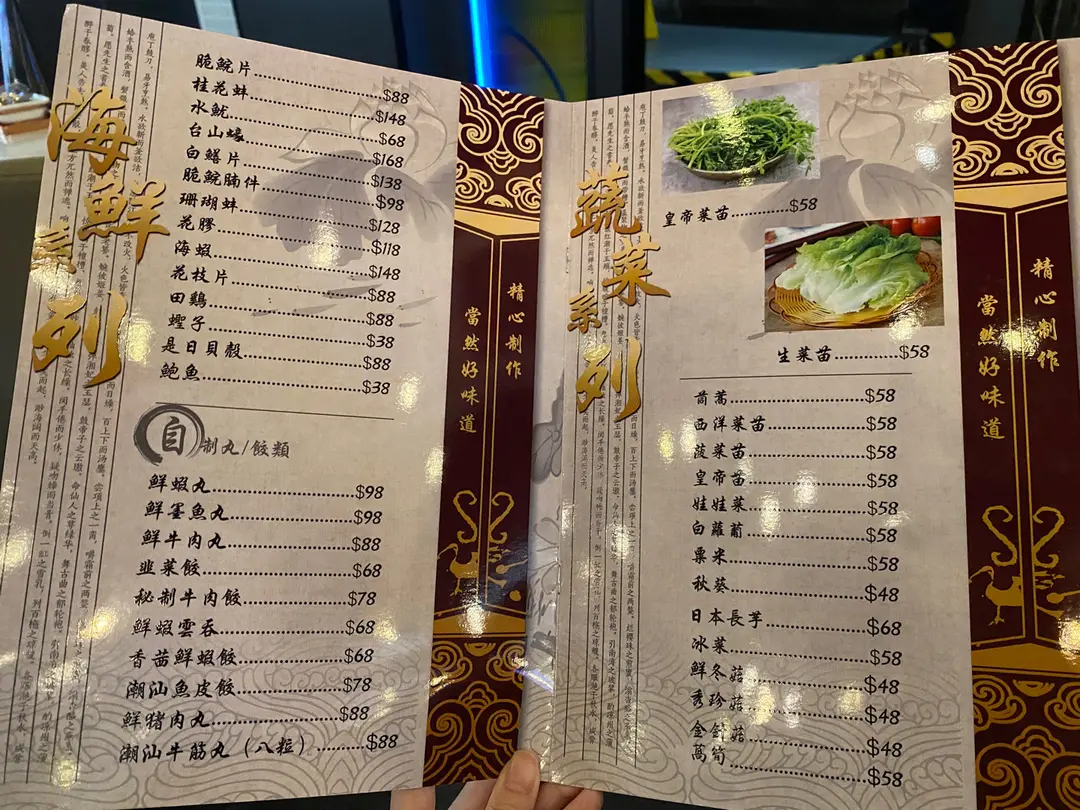 海鮮系列
脆鯇片 $88
桂花蚌 $148
水魷 $68
台山蠔 $168
白鱔片 $138
脆鯇腩件 $98
珊瑚蚌 $128
花膠 $118
海蝦 $148
花枝片 $88
田鷄 $88
蟶子 $38
是日貝殼 $88
鮑魚 $38
自制丸/餃類
鮮蝦丸 $98
鮮墨魚丸 $98
鮮牛肉丸 $88
韭菜餃 $68
秘制牛肉餃 $78
鮮蝦雲吞 $68
香茜鮮蝦餃 $68
潮汕魚皮餃 $78
鮮猪肉丸 $88
潮汕牛筋丸（八粒） $88
精心制作
當然好味道
蔬菜系列
皇帝菜苗 $58
生菜苗 $58
茼蒿 $58
西洋菜苗 $58
菠菜苗 $58
皇帝苗 $58
娃娃菜 $58
白蘿蔔 $58
粟米 $58
秋葵 $48
日本長芋 $68
冰菜 $58
鮮冬菇 $48
秀珍菇 $48
金針菇 $48
萵筍 $58
精心制作
當然好味道